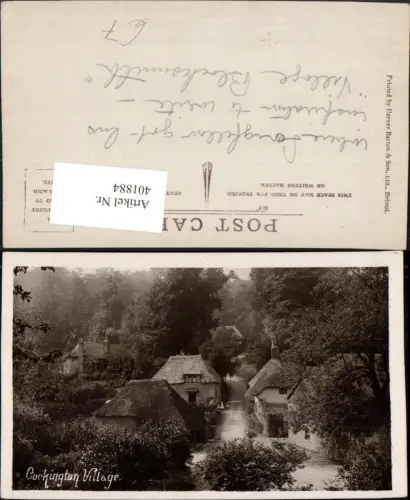 67
"Village Blacksmith"
inspiration to write -
where Longfellow got his
Printed by Harvey Barton & Son, Ltd., Bristol.
Artikel Nr.
401884
THIS SPACE MAY BE USED FOR PRINTED
OR WRITTEN MATTER.
POST CAR
Cockington Village.